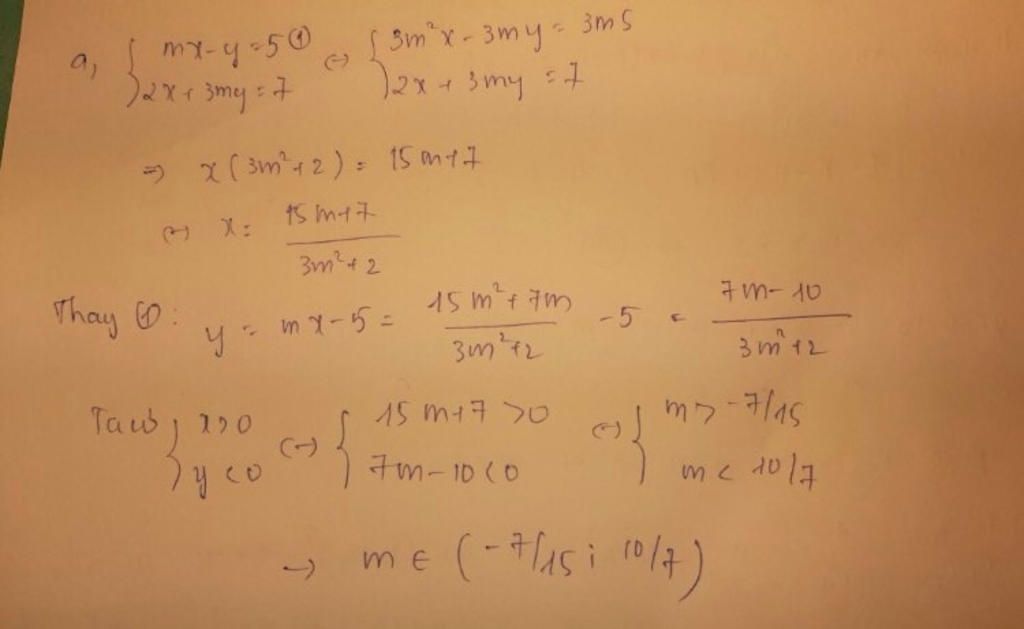 a, { mx - y = 5 ① ⇔ { 3m²x - 3my = 3m5
2x + 3my = 7 2x + 3my = 7
⇒ x(3m² + 2) = 15m + 7
⇔ x = 15m + 7 / 3m² + 2
Thay ①: y = mx - 5 = 15m² + 7m / 3m² + 2 - 5 = 7m - 10 / 3m² + 2
{ x > 0 ⇔ { 15m + 7 > 0 ⇔ { m > -7/15
y < 0 7m - 10 < 0 m < 10/7
→ m ∈ (-7/15 ; 10/7)